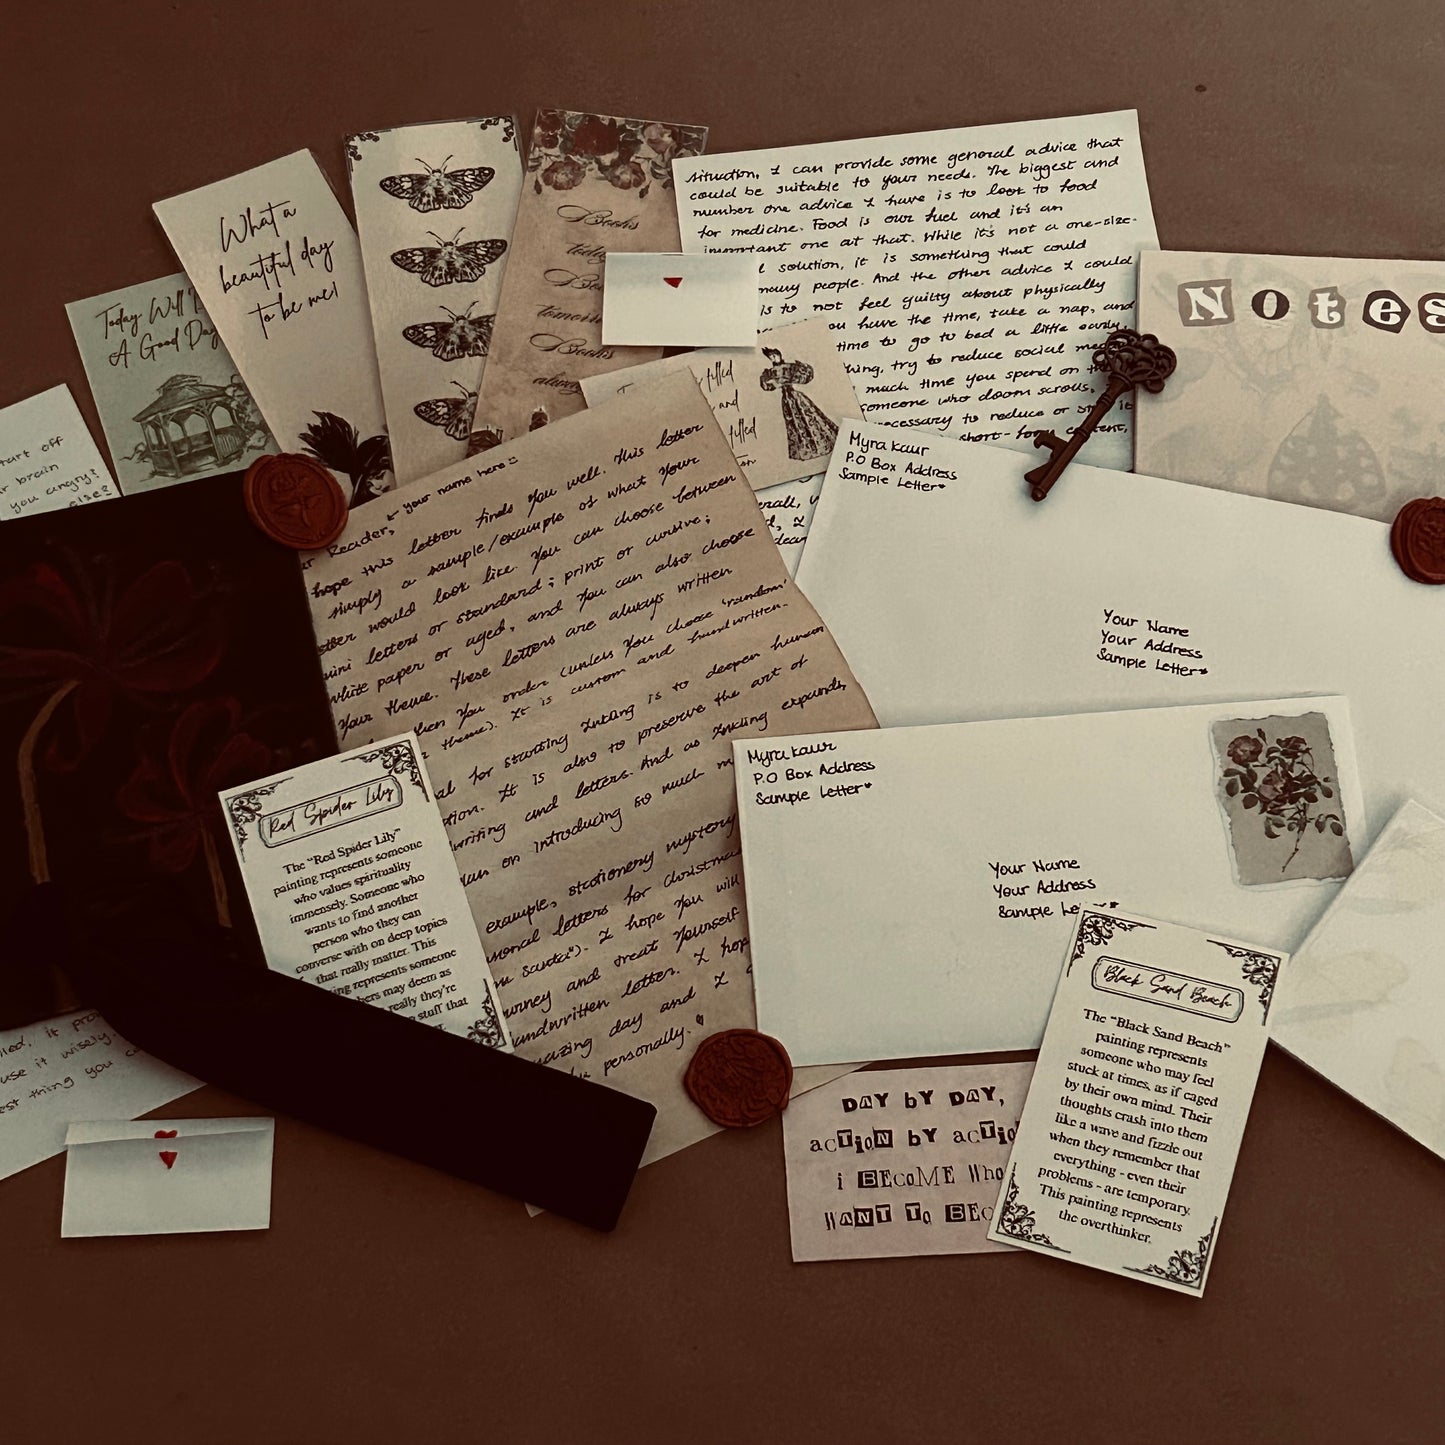 What a
beautiful day
to be me!
Today Will
A Good Day
start off
brain
you angry?
else?
Books
Books
situation, I can provide some general advice that
could be suitable to your needs. The biggest and
number one advice I have is to look to food
for medicine. Food is our fuel and it's an
important one at that. While it's not a one-size-
solution, it is something that could
many people. And the other advice I could
is to not feel guilty about physically
you have the time, take a nap, and
time to go to bed a little early.
thing, try to reduce social
much time you spend on
someone who doom scrolls,
necessary to reduce or
short-form content,
Notes
filled
and
filled
Myra Kaur
P.O Box Address
Sample Letter*
Your Name
Your Address
Sample Letter*
Reader, ← your name here
hope this letter finds you well. This letter
simply a sample/example of what your
letter would look like. You can choose between
mini letters or standard; print or cursive;
white paper or aged, and you can also choose
your theme. These letters are always written
when you order (unless you choose 'random'
theme). It is custom and handwritten.
for starting Inkling is to deepen human
It is also to preserve the art of
writing and letters. And as Inkling expands,
plan on introducing so much
example, stationery mystery
letters for Christmas
Santa"). I hope you will
journey and treat yourself
handwritten letter. I hope
amazing day and I
personally.
Myra Kaur
P.O Box Address
Sample Letter*
Your Name
Your Address
Sample
Red Spider Lily
The "Red Spider Lily"
painting represents someone
who values spirituality
immensely. Someone who
wants to find another
person who they can
converse with on deep topics
that really matter. This
represents someone
may deem as
really they're
stuff that
Black Sand Beach
The "Black Sand Beach"
painting represents
someone who may feel
stuck at times, as if caged
by their own mind. Their
thoughts crash into them
like a wave and fizzle out
when they remember that
everything - even their
problems - are temporary.
This painting represents
the overthinker.
DAY bY DAY,
acTioN bY acTio
i BEcoME Who
WANT To BEc
it
use it wisely.
thing you